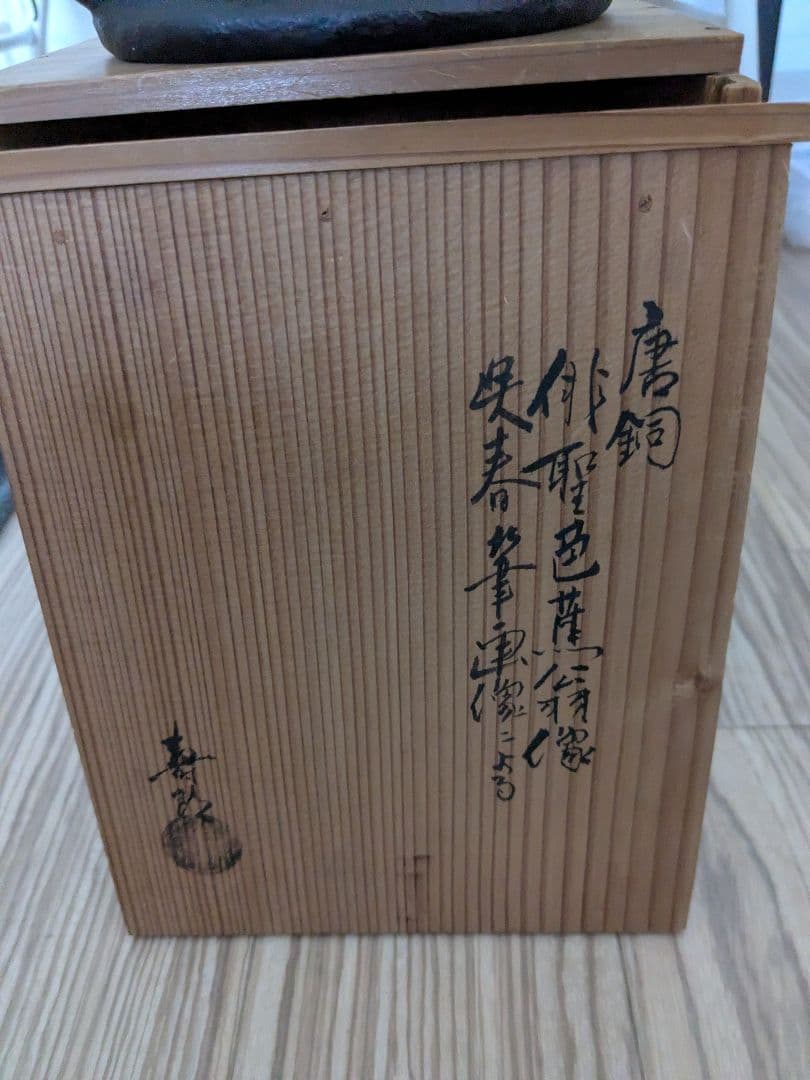 唐銅
俳聖芭蕉翁像
呉春筆画像ニよる
寿